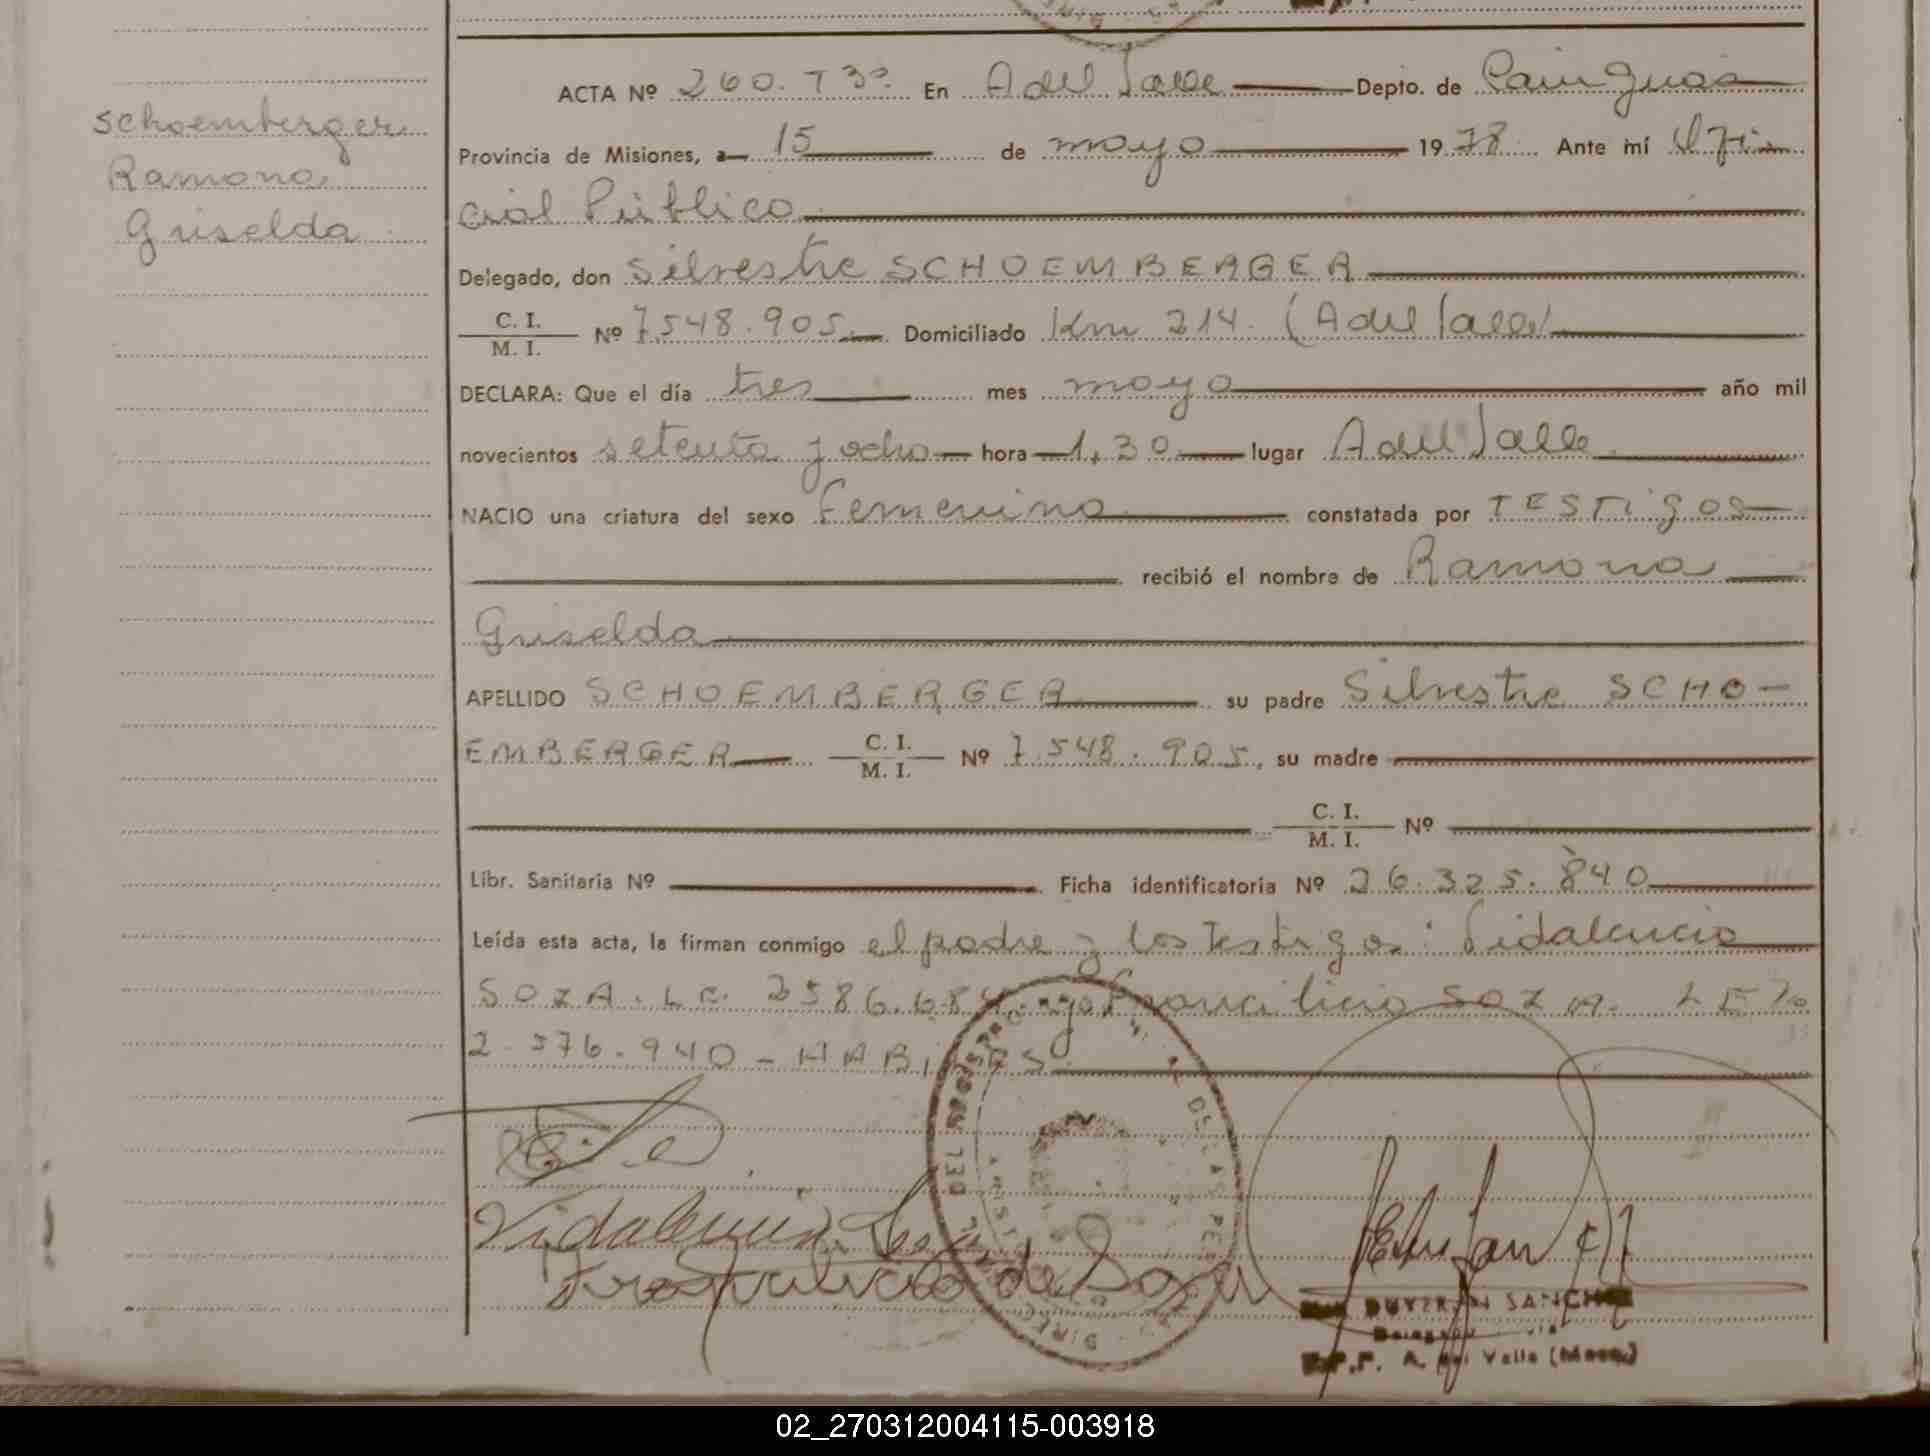 ACTA Nº 260. T 3º. En A del Valle Depto. de Cainguás
Schoemberger
Ramona
Griselda
Provincia de Misiones, a 15 de mayo 1978 Ante mí Ofi-
cial Público
Delegado, don Silvestre SCHOEMBERGER
C. I.
M. I. Nº 7.548.905 Domiciliado Km 214. (A del Valle)
DECLARA: Que el día tres mes mayo año mil
novecientos setenta y ocho hora 1,30 lugar A del Valle
NACIO una criatura del sexo femenino constatada por TESTigos
recibió el nombre de Ramona
Griselda
APELLIDO SCHOEMBERGER su padre Silvestre SCHO-
EMBERGER C. I.
M. I. Nº 7.548.905, su madre
C. I.
M. I. Nº
Libr. Sanitaria Nº Ficha identificatoria Nº 26.325.840
Leída esta acta, la firman conmigo el padre y los Testigos: Vidalencio
SOZA. LE. SOZA. LE Nº
2.576.940 - HABILES
DEL
DE LAS PE
DIREC
Vidalencio
de Soza
SANCHEZ
A. del Valle (Mnes.)
02_270312004115-003918